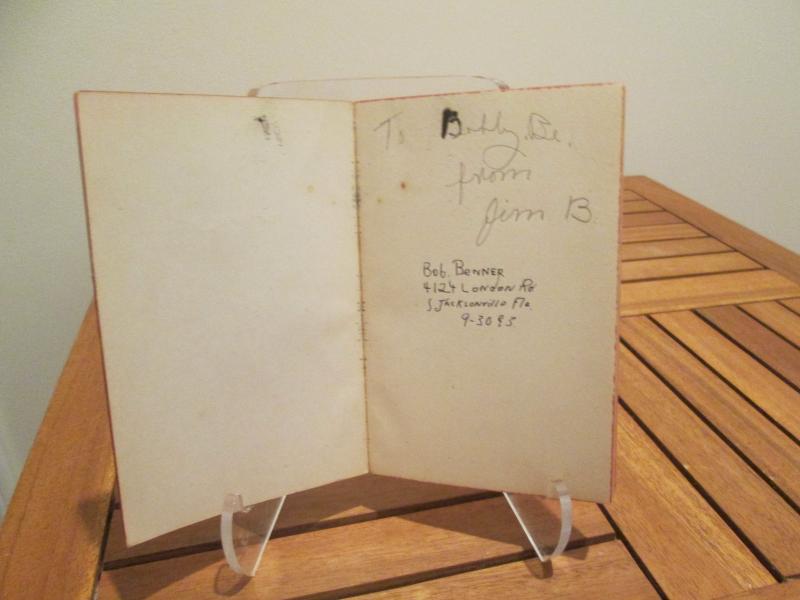 To Bobby. Be.
from
Jim B
Bob. Benner
4124 London Rd
S. Jacksonville Fla.
9-3095